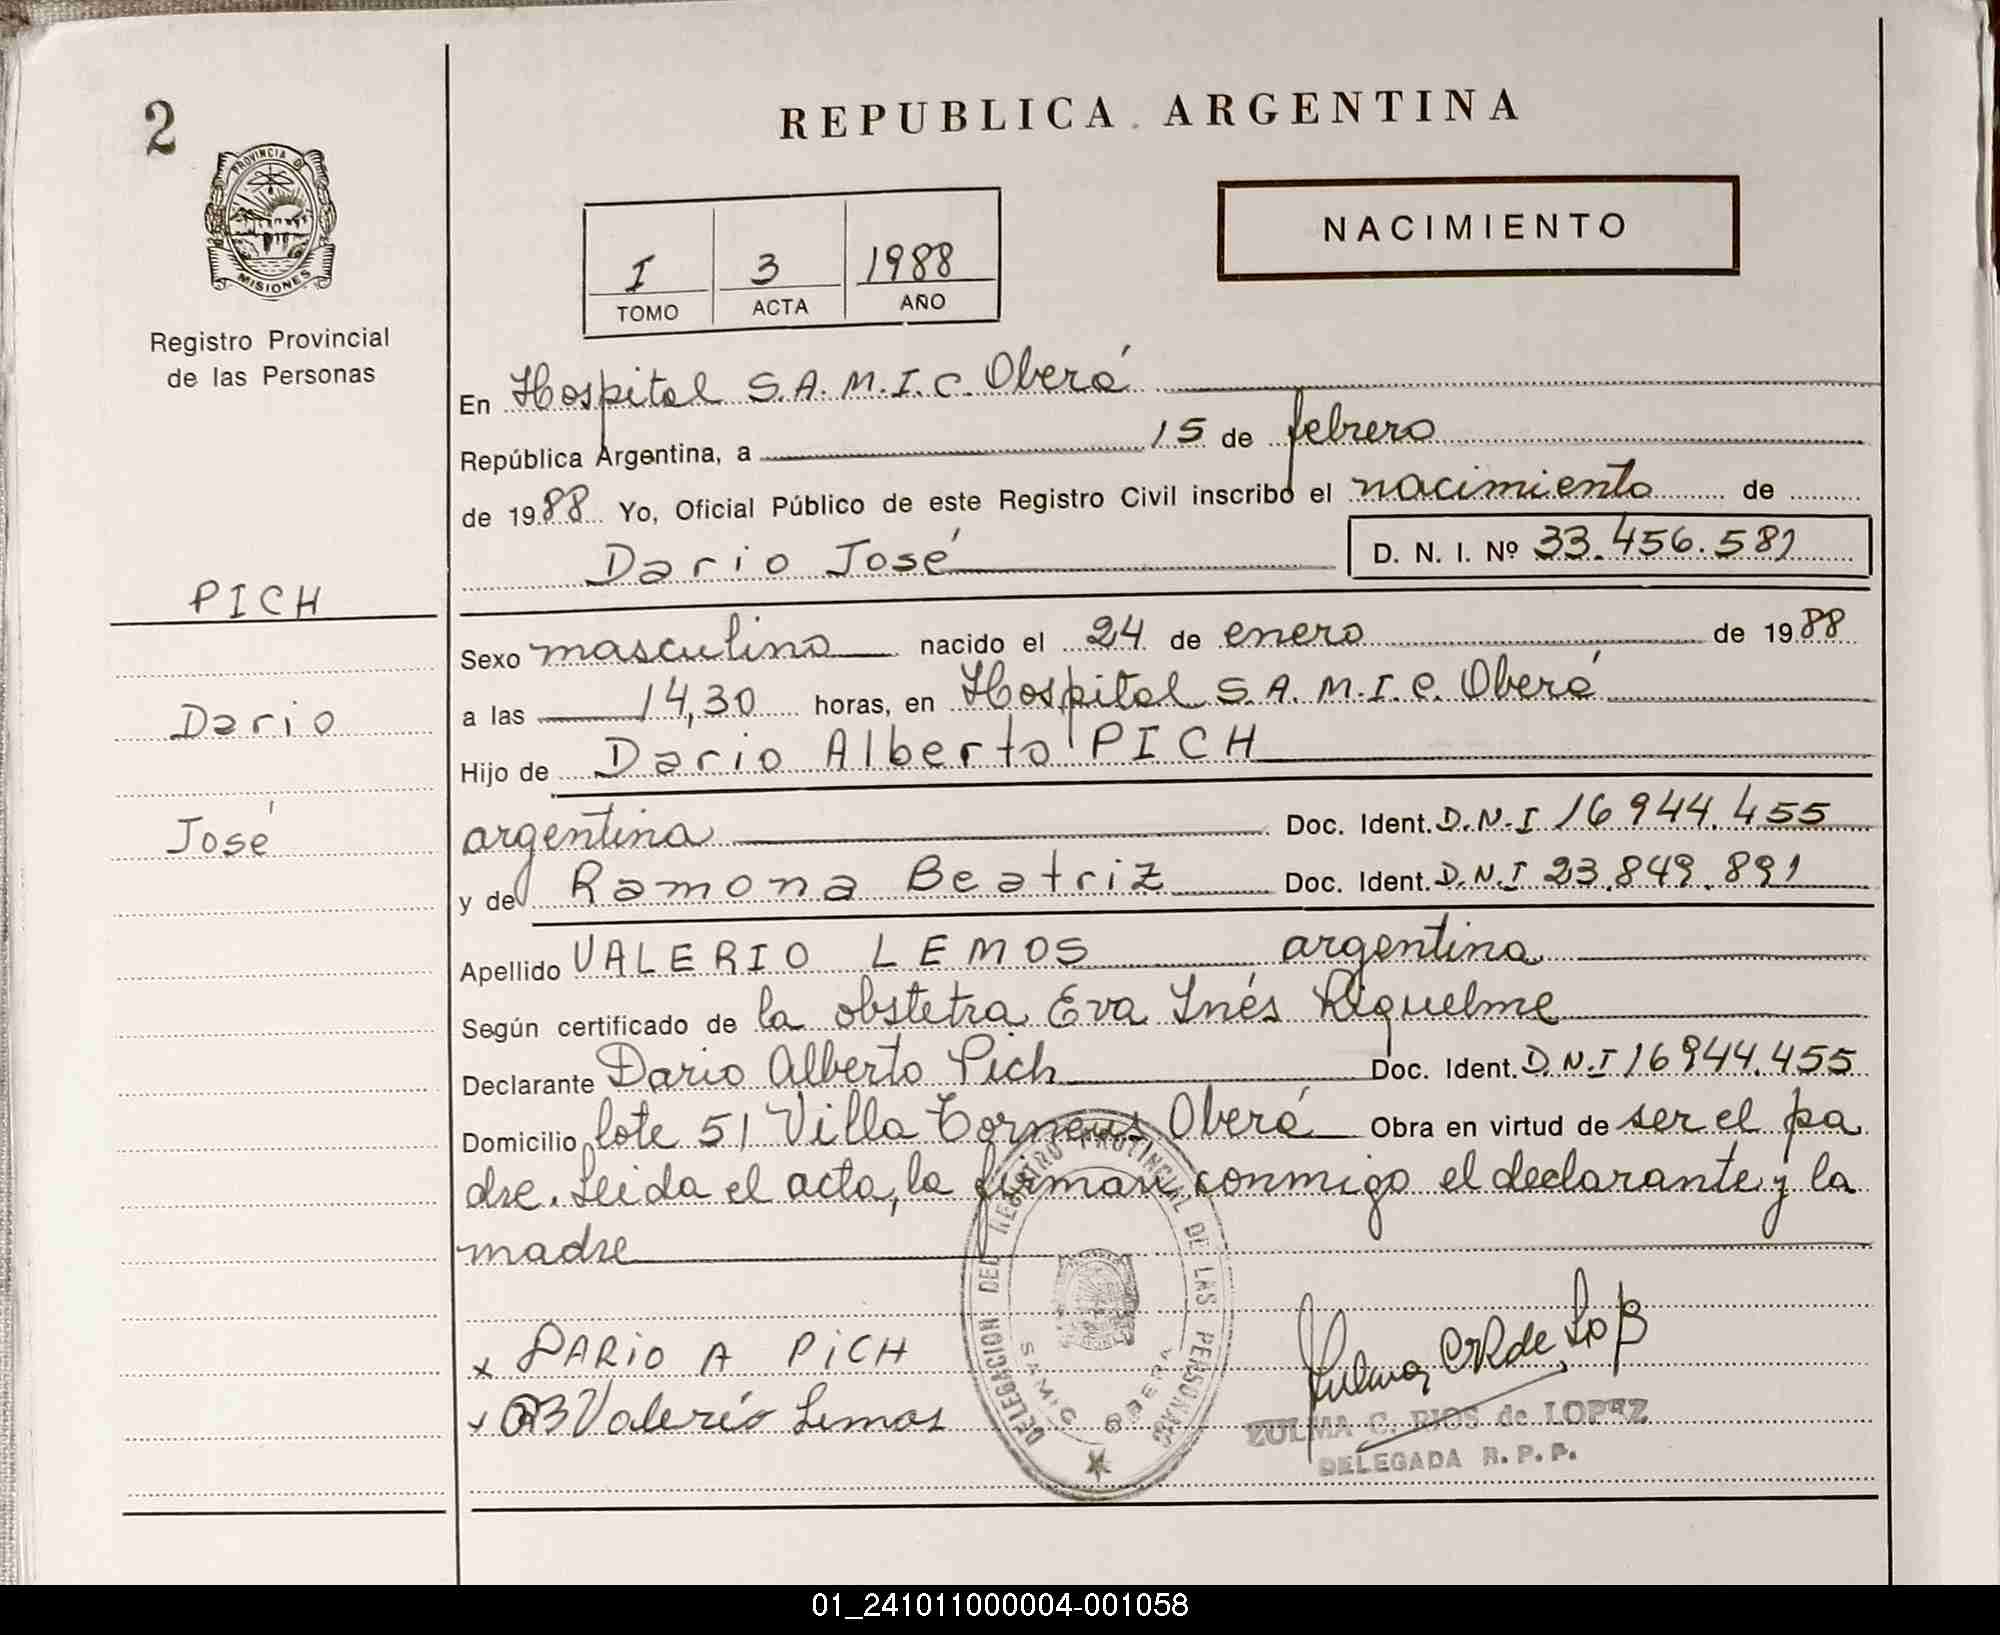 2
PROVINCIA DE
MISIONES
Registro Provincial
de las Personas
REPUBLICA ARGENTINA
NACIMIENTO
I 3 1988
TOMO ACTA AÑO
En Hospital S.A.M.I.C. Oberá
República Argentina, a 15 de febrero
de 1988 Yo, Oficial Público de este Registro Civil inscribo el nacimiento de
Dario José D. N. I. Nº 33.456.581
PICH
Sexo masculino nacido el 24 de enero de 1988
Dario
a las 14,30 horas, en Hospital S.A.M.I.C. Oberá
Hijo de Dario Alberto PICH
José
argentina Doc. Ident. D.N.I 16 944.455
y de Ramona Beatriz Doc. Ident. D.N.I 23.849.891
Apellido VALERIO LEMOS argentina
Según certificado de la obstetra Eva Inés Riquelme
Declarante Dario Alberto Pich Doc. Ident. D.N.I 16944.455
Domicilio lote 51 Villa Oberá Obra en virtud de ser el pa
dre. Leida el acta, la firman conmigo el declarante y la
madre
DELEGACION DEL REGISTRO PROVINCIAL DE LAS PERSONAS
SAMIC OBERA
x DARIO A PICH
x Valerio Lemos
ZULMA C. RIOS de LOPEZ
DELEGADA R. P. P.
01_241011000004-001058